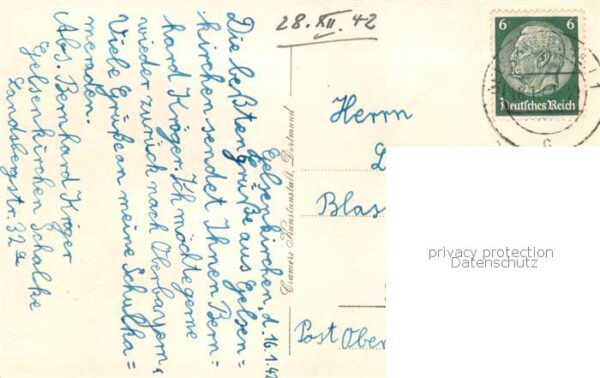 28. XII. 42
6 6
Deutsches Reich
Gelsenkirchen, d. 16.1.42
Die beßten Grüße aus Gelsen=
kirchen sendet Ihnen Bern=
hard Kröger. Ich möchte gerne
wieder zurück nach Oberbayern.
Viele Grüße an meine Schulka=
meraden.
Abs. Bernhard Kröger
Gelsenkirchen Schalke
Landsbergstr. 32a
Cramers Kunstanstalt, Dortmund
Herrn
L
Blas
Post Ober
privacy protection
Datenschutz